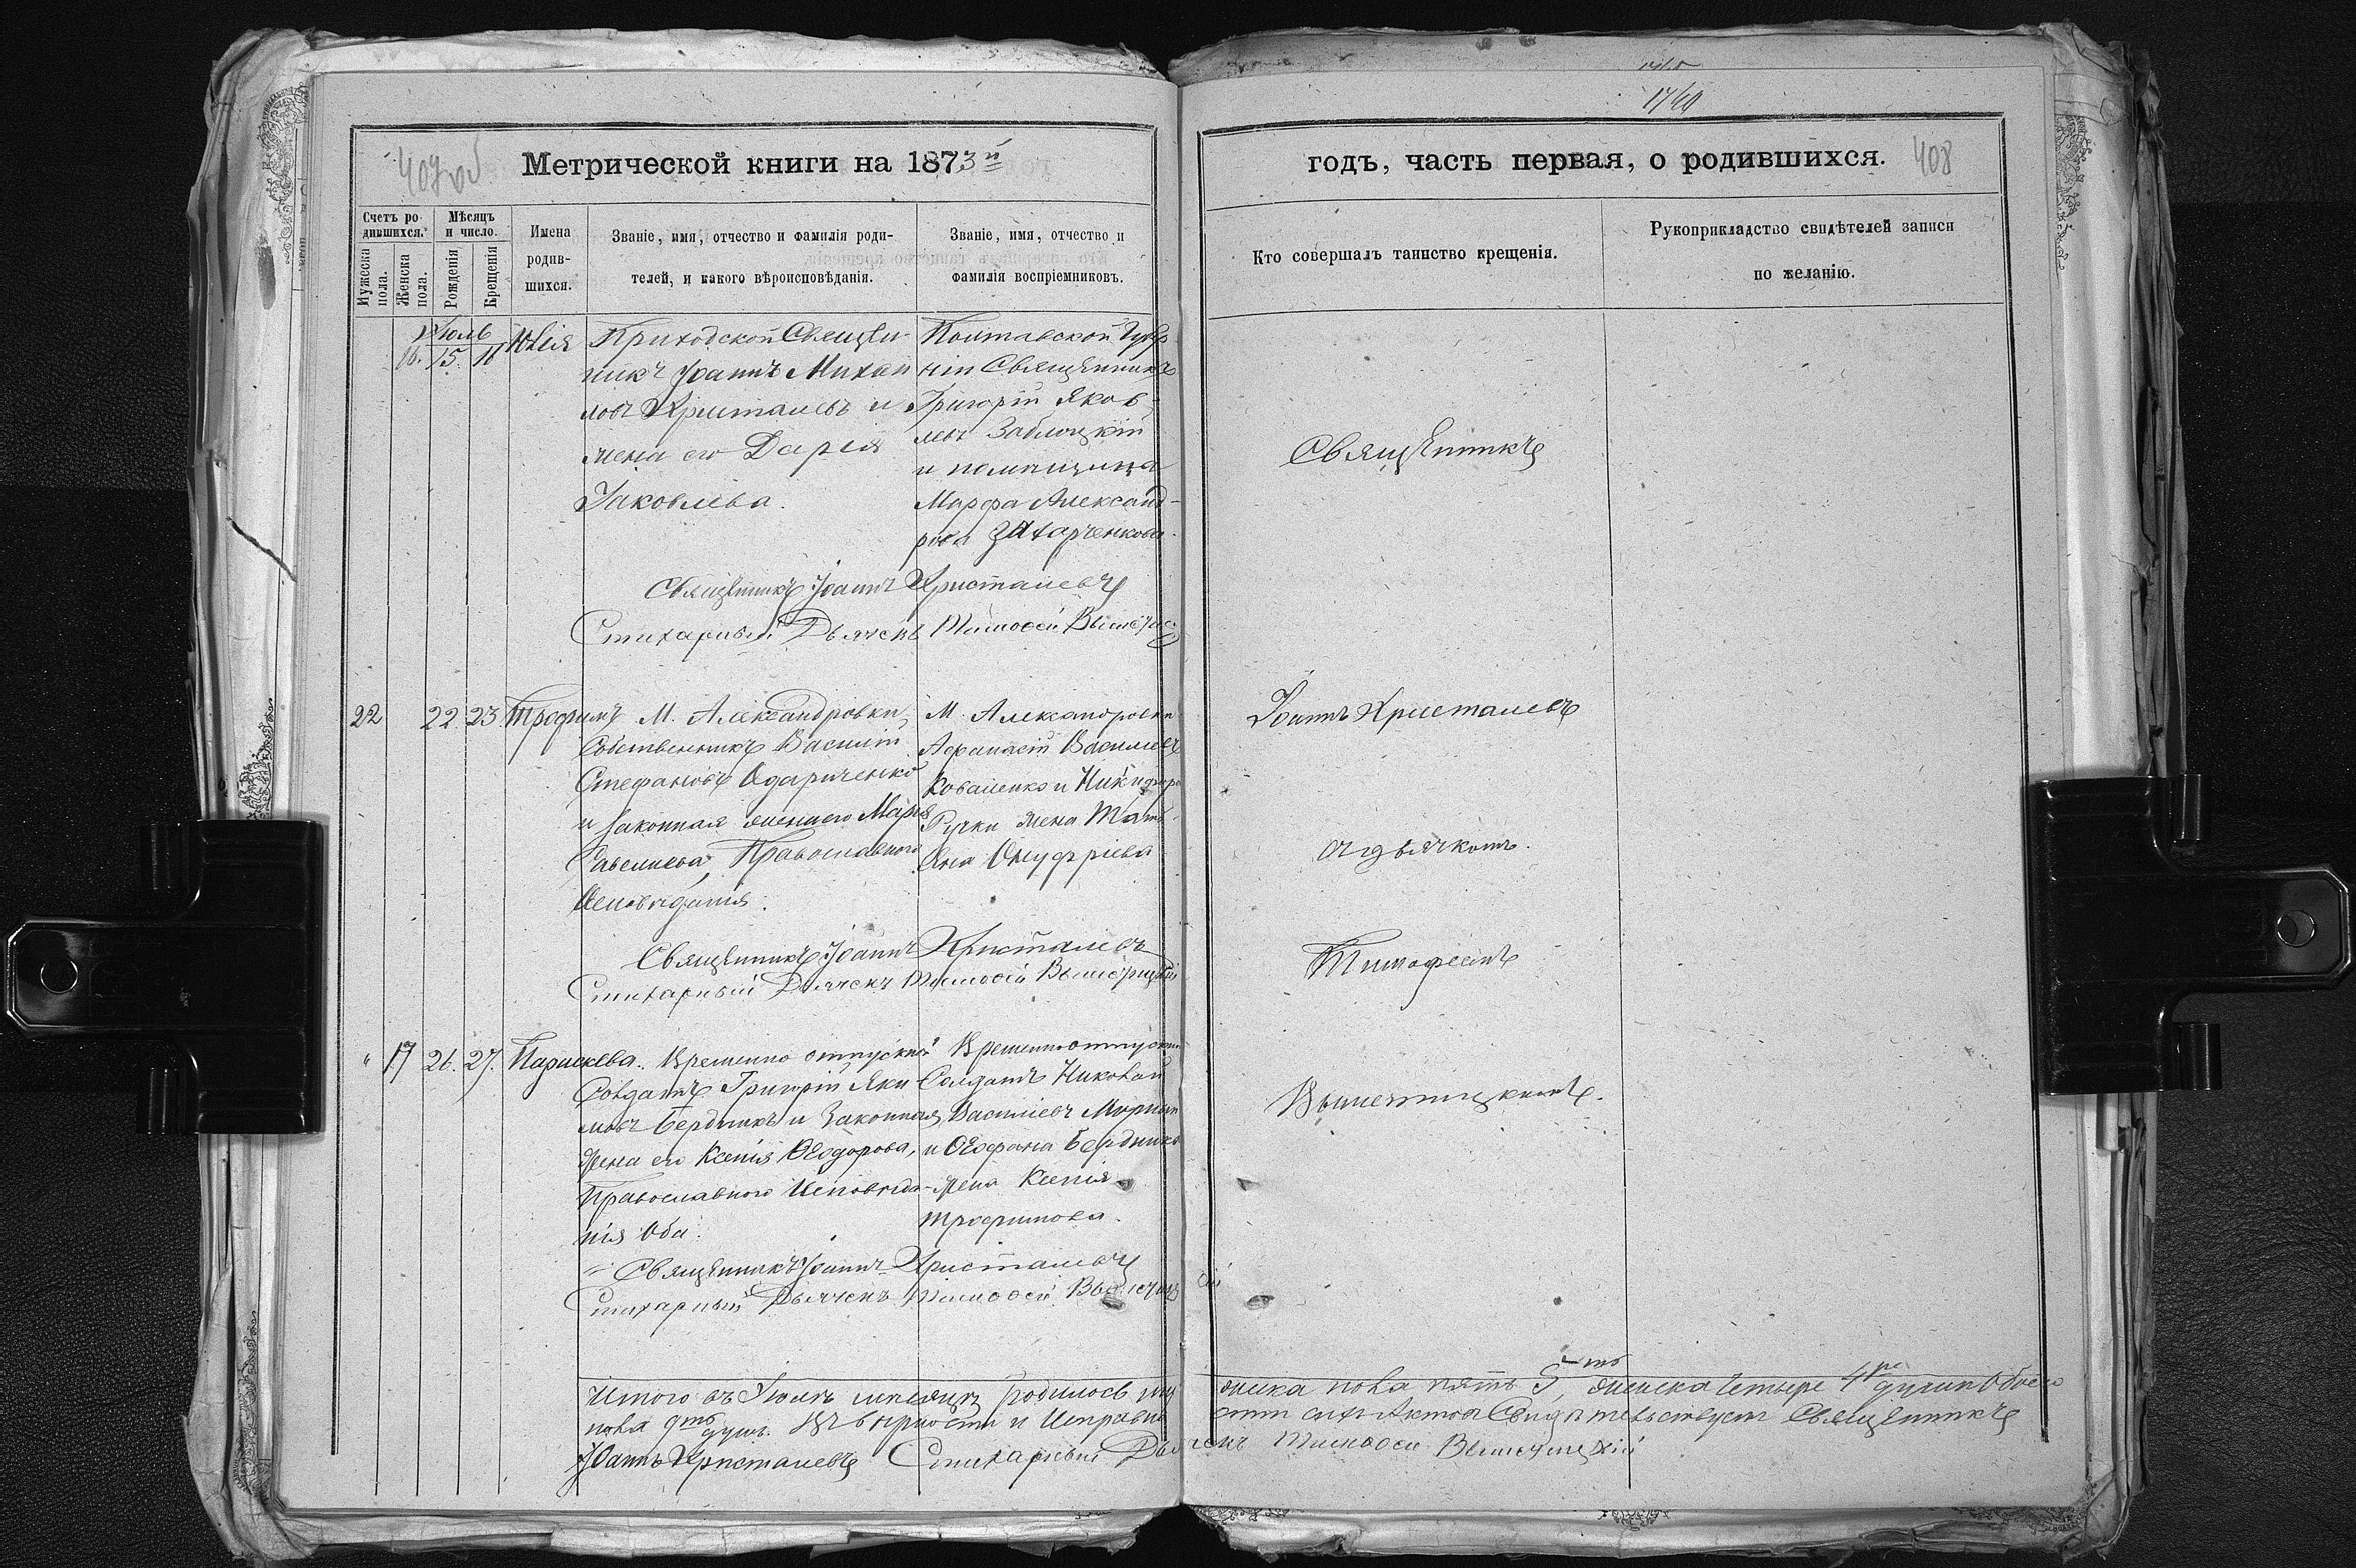 1760
407 об
Метрической книги на 1873й
годъ, часть первая, о родившихся.
408
Счетъ родившихся.
Мѣсяцъ и число.
Мужеска пола.
Женска пола.
Рожденія
Крещенія
Имена родившихся.
Званіе, имя, отчество и фамилія родителей, и какого вѣроисповѣданія.
Званіе, имя, отчество и фамилія воспріемниковъ.
Кто совершалъ таинство крещенія.
Рукоприкладство свидѣтелей записи по желанію.
Іюль
16. 15. 16 Юлія
Приходской Священ-
никъ Іоаннъ Михаи
ловъ Христалевъ и
жена его Дарія
Іаковлева.
Полтавской Губер
ніи Священникъ
Григорій Яков-
левъ Заблоцкій
и помѣщица
Марфа Александ-
рова Захарченкова.
Священникъ Іоаннъ Христалевъ
Стихарный Дьячекъ Тимофей
22 22 23 Трофимъ
М. Александровки,
Собственникъ Василій
Стефановъ Одариченко
и законная жена его Марія
Савелиева, Православного
Исповѣданія.
М. Александровки
Афанасій Василиевъ
Коваленко и Никифора
Ручки жена Тать-
яна Онуфріева
Священникъ Іоаннъ Христалевъ
Стихарный Дьячекъ Тимофей
" 17 26. 27. Параскева.
Временно отпускной
Солдатъ Григорій Яки
мовъ Бердникъ и Законная
жена его Ксенія Ѳеодорова,
Православного Исповѣда-
нія Оба.
Временно отпускн
Солдатъ Николай
Василіевъ
и Ѳеофана Бердника
жена Ксенія
Трофимова.
Священникъ Іоаннъ Христалевъ
Стихарный Дьячекъ Тимофей
Священникъ
Іоаннъ Христалевъ
съ дьячкомъ.
Тимофеемъ
Итого въ Іюлѣ мѣсяцѣ родилось му жеска пола пять 5ть, женска четыре 4ре душъ Обоего
пола 9ть душъ. Въ вѣрности и Исправно сти сихъ Актовъ Свидѣтельствуетъ Священникъ
Іоаннъ Христалевъ Стихарный Дьячекъ Тимофей